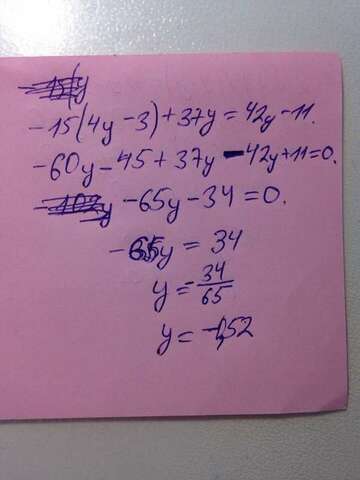 -15(4y-3)+37y=42y-11.
-60y-45+37y-42y+11=0.
-65y-34=0.
-65y=34
y=-34/65
y=-0,52